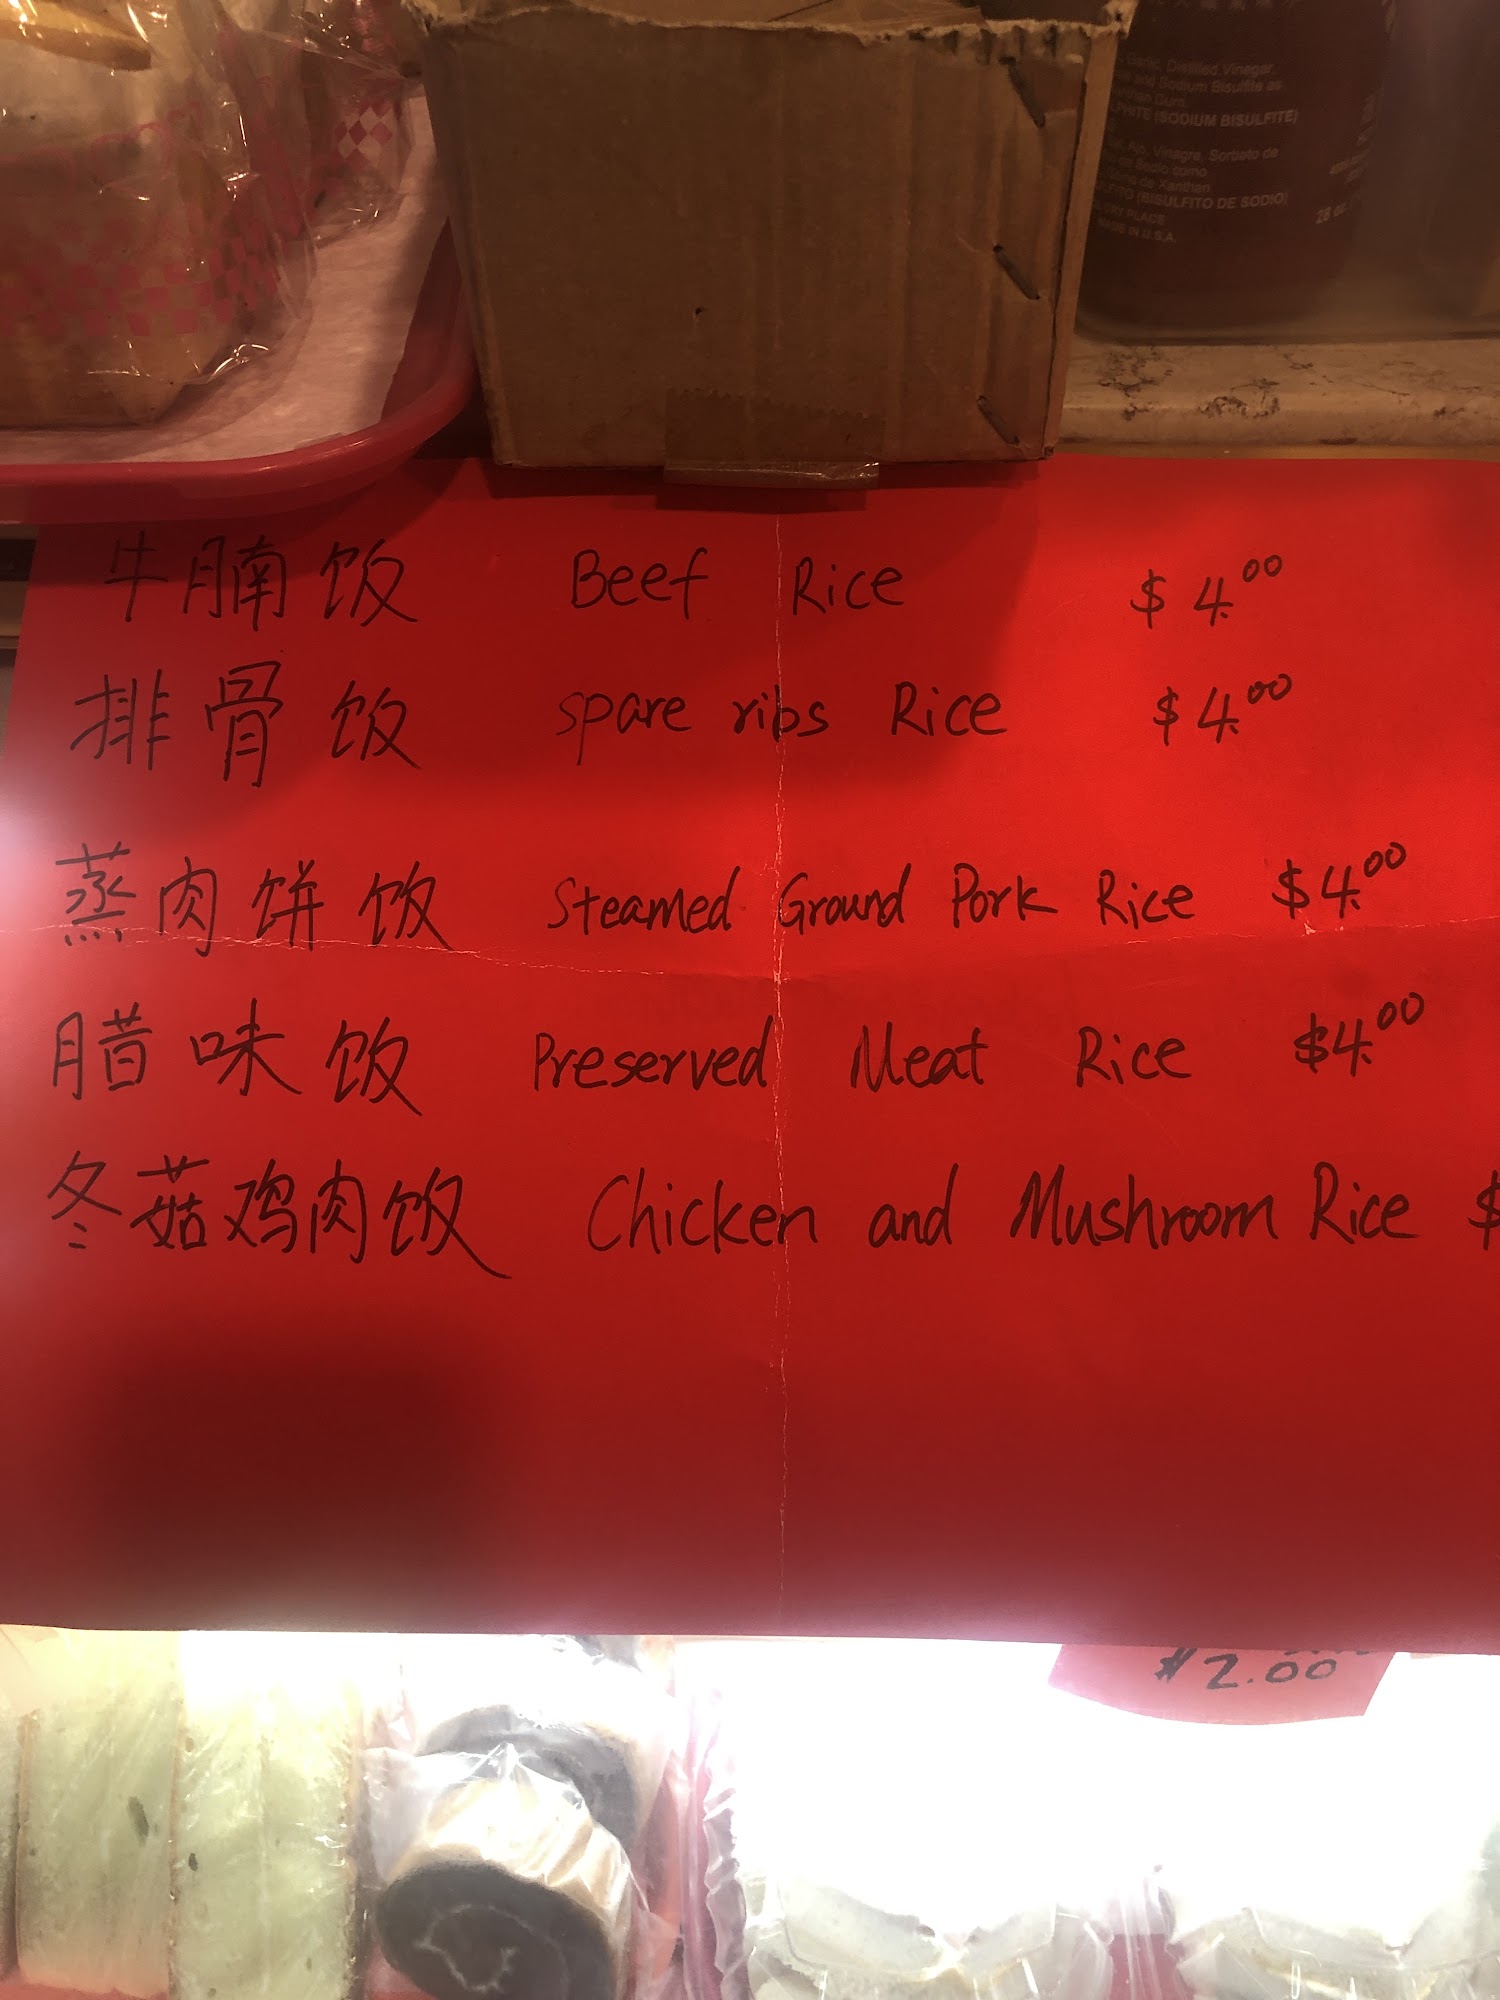 Garlic, Distilled Vinegar,
and Sodium Bisulfite as
Xanthan Gum.
(SODIUM BISULFITE)
Ajo, Vinagre, Sorbato de
de Sodio como
de Xanthan
(BISULFITO DE SODIO)
DRY PLACE
MADE IN U.S.A.
28 oz.
牛腩饭 Beef Rice $4.00
排骨饭 spare ribs Rice $4.00
蒸肉饼饭 Steamed Ground Pork Rice $4.00
腊味饭 Preserved Meat Rice $4.00
冬菇鸡肉饭 Chicken and Mushroom Rice $
$2.00